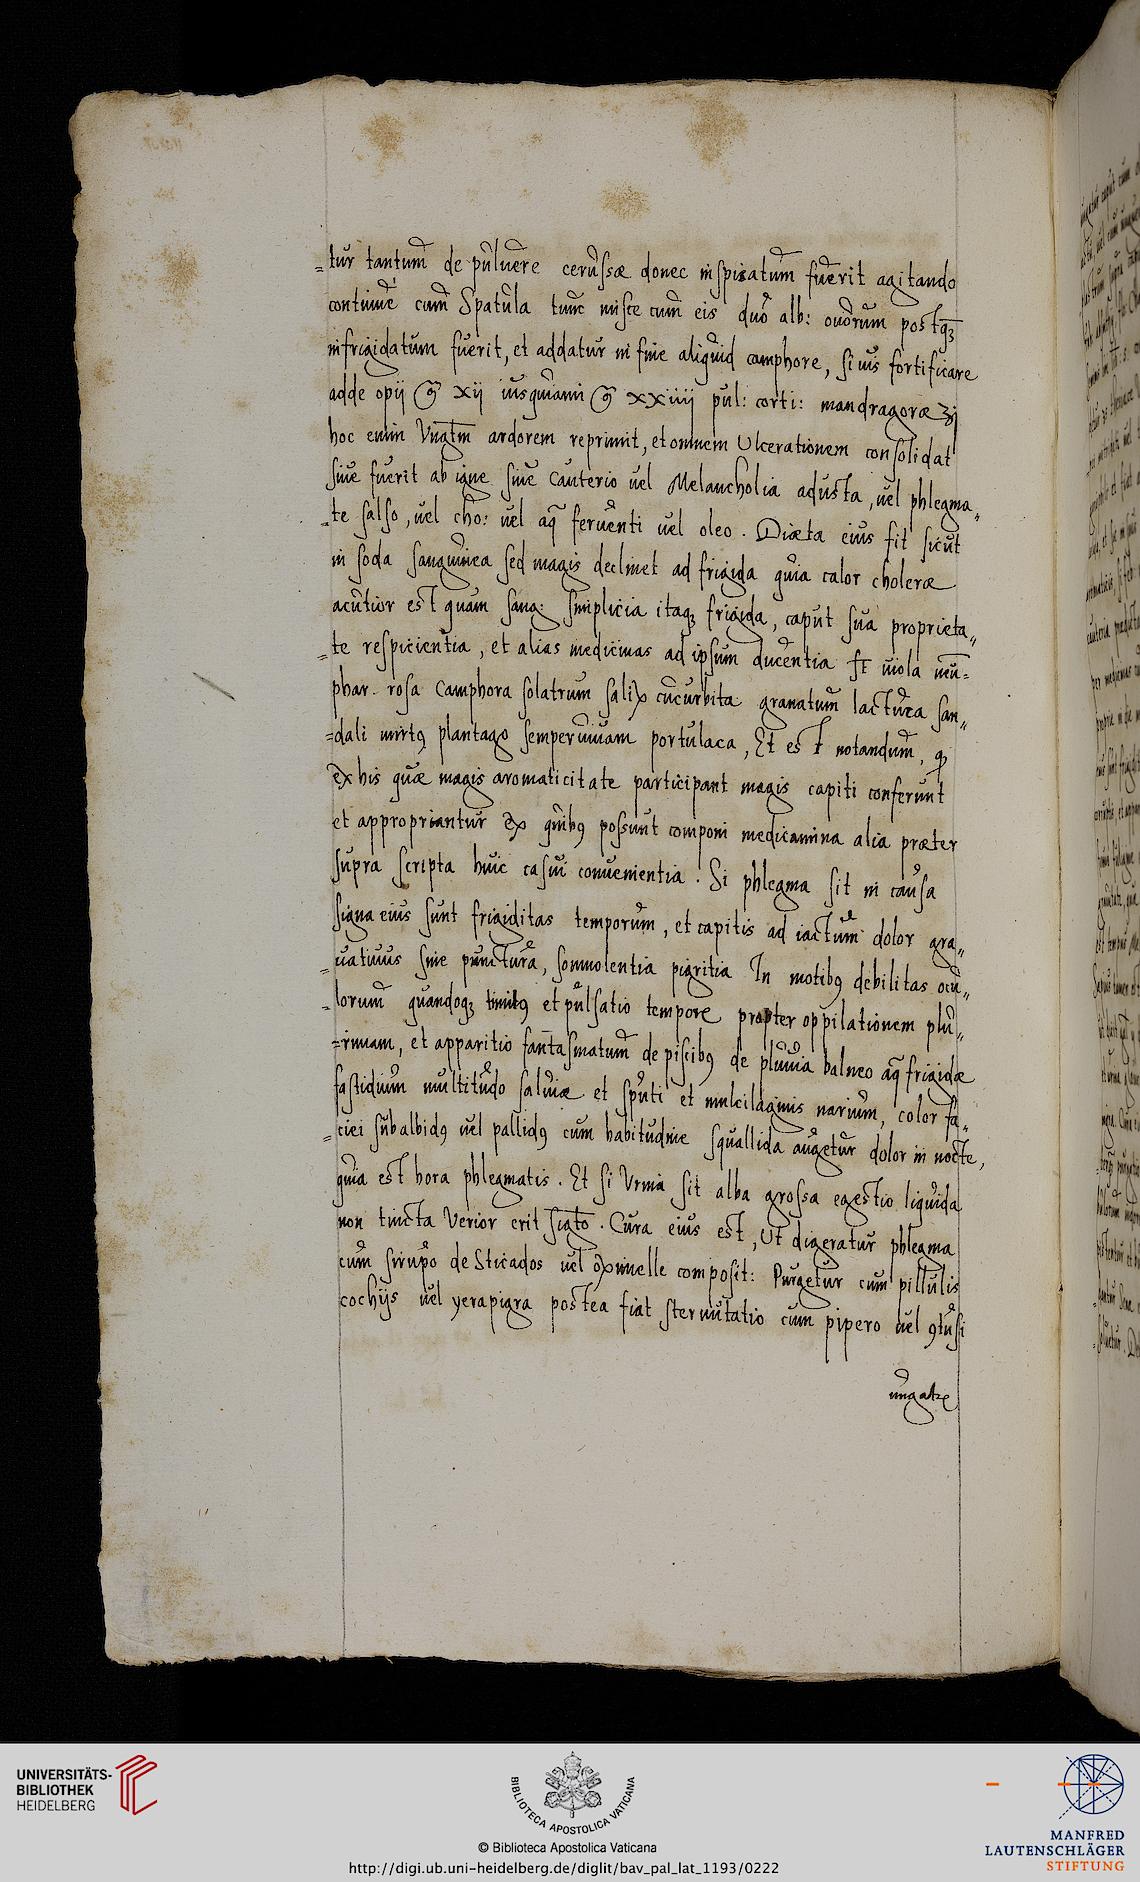 =tur tantum de puluere cerussæ donec inspisatum fuerit agitando
continuè cum Spatula tunc misce cum eis duo alb: ouorum postqȝ
infrigidatum fuerit, et addatur in fine aliquid camphore, si uis fortificare
adde opij xij iusquiami xxiiij pul: corti: mandragoræ ʒj
hoc enim Vngtm ardorem reprimit, et omnem Ulcerationem consolidat
siue fuerit ab igne siue Cauterio uel Melancholia adusta, uel phlegma„
=te salso, uel cho: uel aq̃ feruenti uel oleo. Diæta eius sit sicut
in soda sanguinea sed magis declinet ad frigida quia calor choleræ
acutior est quam sang: simplicia itaqȝ frigida, caput sua proprieta„
=te respicientia, et alias medicinas ad ipsum ducentia st uiola neu=
phar. rosa Camphora solatrum salix cucurbita granatum lactuca san„
=dali mirtꝯ plantago semperuiuam portulaca, Et est notandum, ꝙ
ex his quæ magis aromaticitate participant magis capiti conferunt
et appropriantur ex quibꝯ possunt componi medicamina alia præter
supra scripta huic casui conuenientia. Si phlegma sit in causa
signa eius sunt frigiditas temporum, et capitis ad iactum dolor gra„
=uatiuus sine punctura, somnolentia pigritia In motibꝯ debilitas ocu„
=lorum quandoqȝ tinitꝯ et pulsatio tempore propter oppilationem plu„
=rimam, et apparitio fantasmatum de piscibꝯ de pluuia balneo aq̃ frigidæ
fastidium multitudo saliuæ et sputi et mulcilaginis narium, color fa„
=ciei subalbidꝯ uel pallidꝯ cum habitudine squallida augetur dolor in nocte,
quia est hora phlegmatis. Et si Vrina sit alba grossa egestio liquida
non tincta Verior erit sigto. Cura eius est, Ut digeratur phlegma
cum sirupo de Sticados uel oximelle composit: Purgetur cum pillulis
cochijs uel yerapigra postea fiat sternutatio cum pipero uel ꝯtusi
ungatꝛ
UNIVERSITÄTS-
BIBLIOTHEK
HEIDELBERG
BIBLIOTECA APOSTOLICA VATICANA
© Biblioteca Apostolica Vaticana
http://digi.ub.uni-heidelberg.de/diglit/bav_pal_lat_1193/0222
MANFRED
LAUTENSCHLÄGER
STIFTUNG